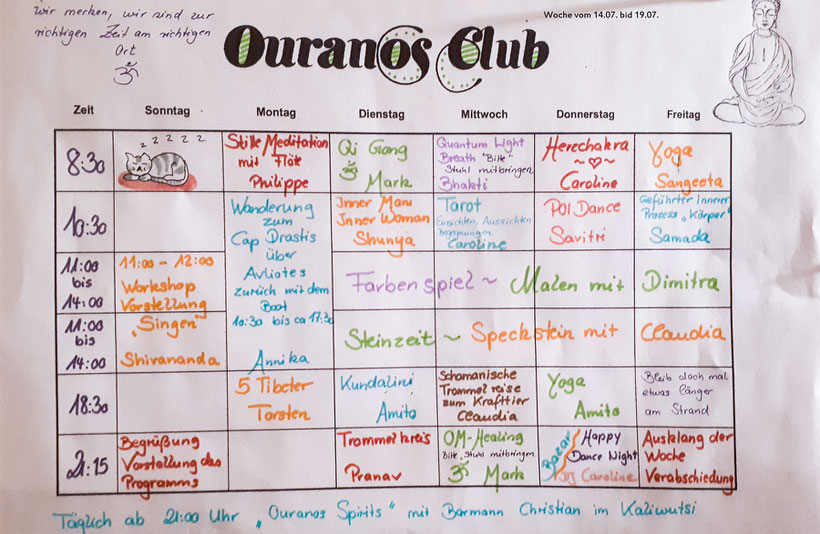 Wir merken, wir sind zur
richtigen Zeit am richtigen
Ort
ॐ
Ouranos Club
Woche vom 14.07. bid 19.07.
Zeit Sonntag Montag Dienstag Mittwoch Donnerstag Freitag
8:30
z z z z z
Stille Meditation
mit Flöte
Philippe
Qi Gong
ॐ
Mark
Quantum Light
Breath "Bitte"
Stuhl mitbringen
Bhakti
Herzchakra
~♡~
Caroline
Yoga
Sangeeta
10:30
Wanderung
zum
Cap Drastis
über
Avliotes
zurück mit dem
Boot
10:30 bis ca 17:30
Annika
Inner Man
Inner Woman
Shunya
Tarot
Einsichten, Aussichten
Begegnungen
Caroline
Poi Dance
Savitri
Geführter innerer
Prozess „Körper"
Samada
11:00
bis
14:00
11:00 - 12:00
Workshop
Vorstellung
Farbenspiel ~ Malen mit Dimitra
11:00
bis
14:00
„Singen"
Shivananda
Steinzeit ~ Speckstein mit Claudia
18:30
5 Tibeter
Torsten
Kundalini
Amito
Schamanische
Trommelreise
zum Krafttier
Claudia
Yoga
Amito
Bleib doch mal
etwas länger
am Strand
21:15
Begrüßung
Vorstellung des
Programms
Trommelkreis
Pranav
OM-Healing
Bitte, Stuhl mitbringen
ॐ Mark
Bazar
Happy
Dance Night
DJ Caroline
Ausklang der
Woche
Verabschiedung
Täglich ab 21:00 Uhr „Ouranos Spirits" mit Barmann Christian im Kaliwutsi